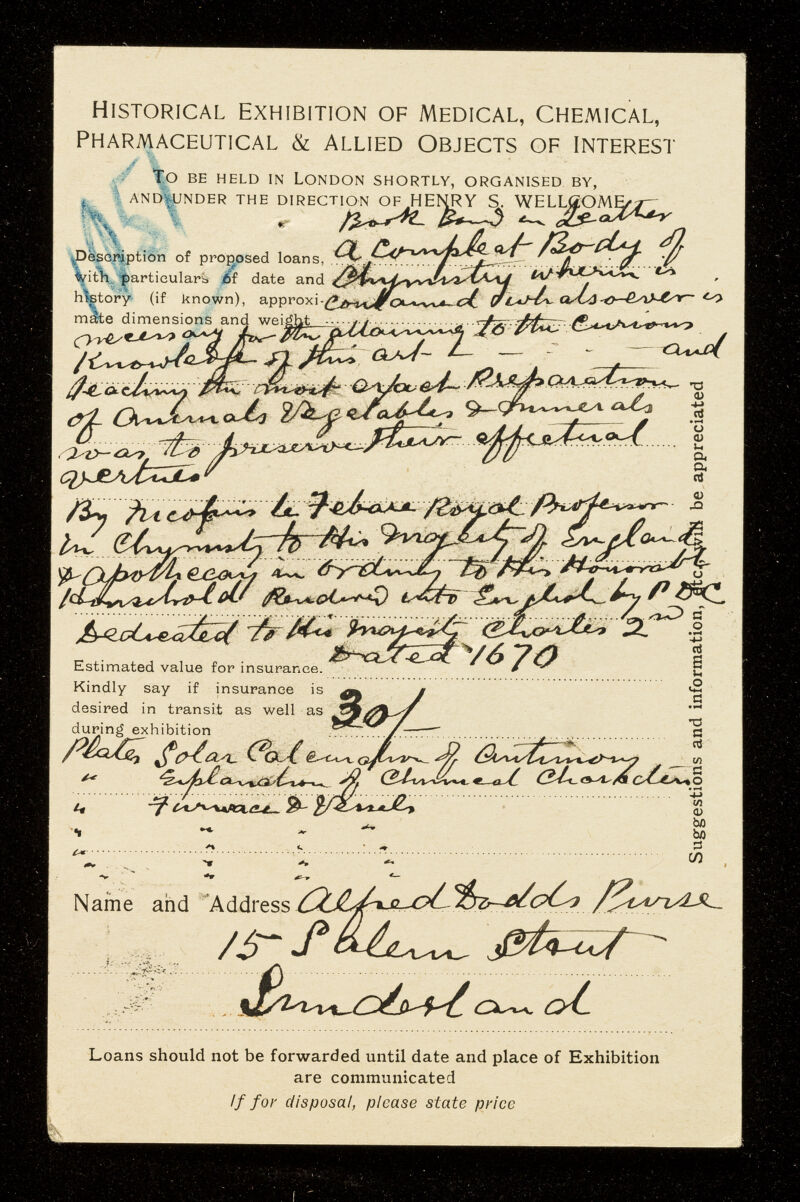 HISTORICAL EXHIBITION OF MEDICAL, CHEMICAL,
PHARMACEUTICAL & ALLIED OBJECTS OF INTEREST
TO BE HELD IN LONDON SHORTLY, ORGANISED BY,
AND UNDER THE DIRECTION OF HENRY S. WELLCOME
1051
Book Bound in Leather
Description of proposed loans, A Compleat Body of
with particulars of date and Chymistry wherin is
history (if known), approxi- contained whatsoever is
mate dimensions and weight
necessary for the attaining to the Curious
Knowledge of this art - - - - and
teaching the most exact Preparation
of Animals Vegetables & minerals
so as to preserve their effectual
vertues
By Nicofuis le Febure Royal Professor
in Chymisty to His Majesty of England
& apothecary in ordinary to His Honorable
Household Rendered into English by P D C
Dedicated to His Majesty Charles 2nd
Dated 1670
Estimated value for insurance.
Kindly say if insurance is
desired in transit as well as 30/-
during exhibition
Plates Solar Calcination of Antimony
" Explanation of Chimical Characters
" Furnace & Vessels
" " " "
" " " "
" " " "
" " "
Name and Address Alfred Dodds Purse
15 Salem Street
Sunderland
Loans should not be forwarded until date and place of Exhibition
are communicated
If for disposal, please state price
Suggestions and information, etc., will be appreciated